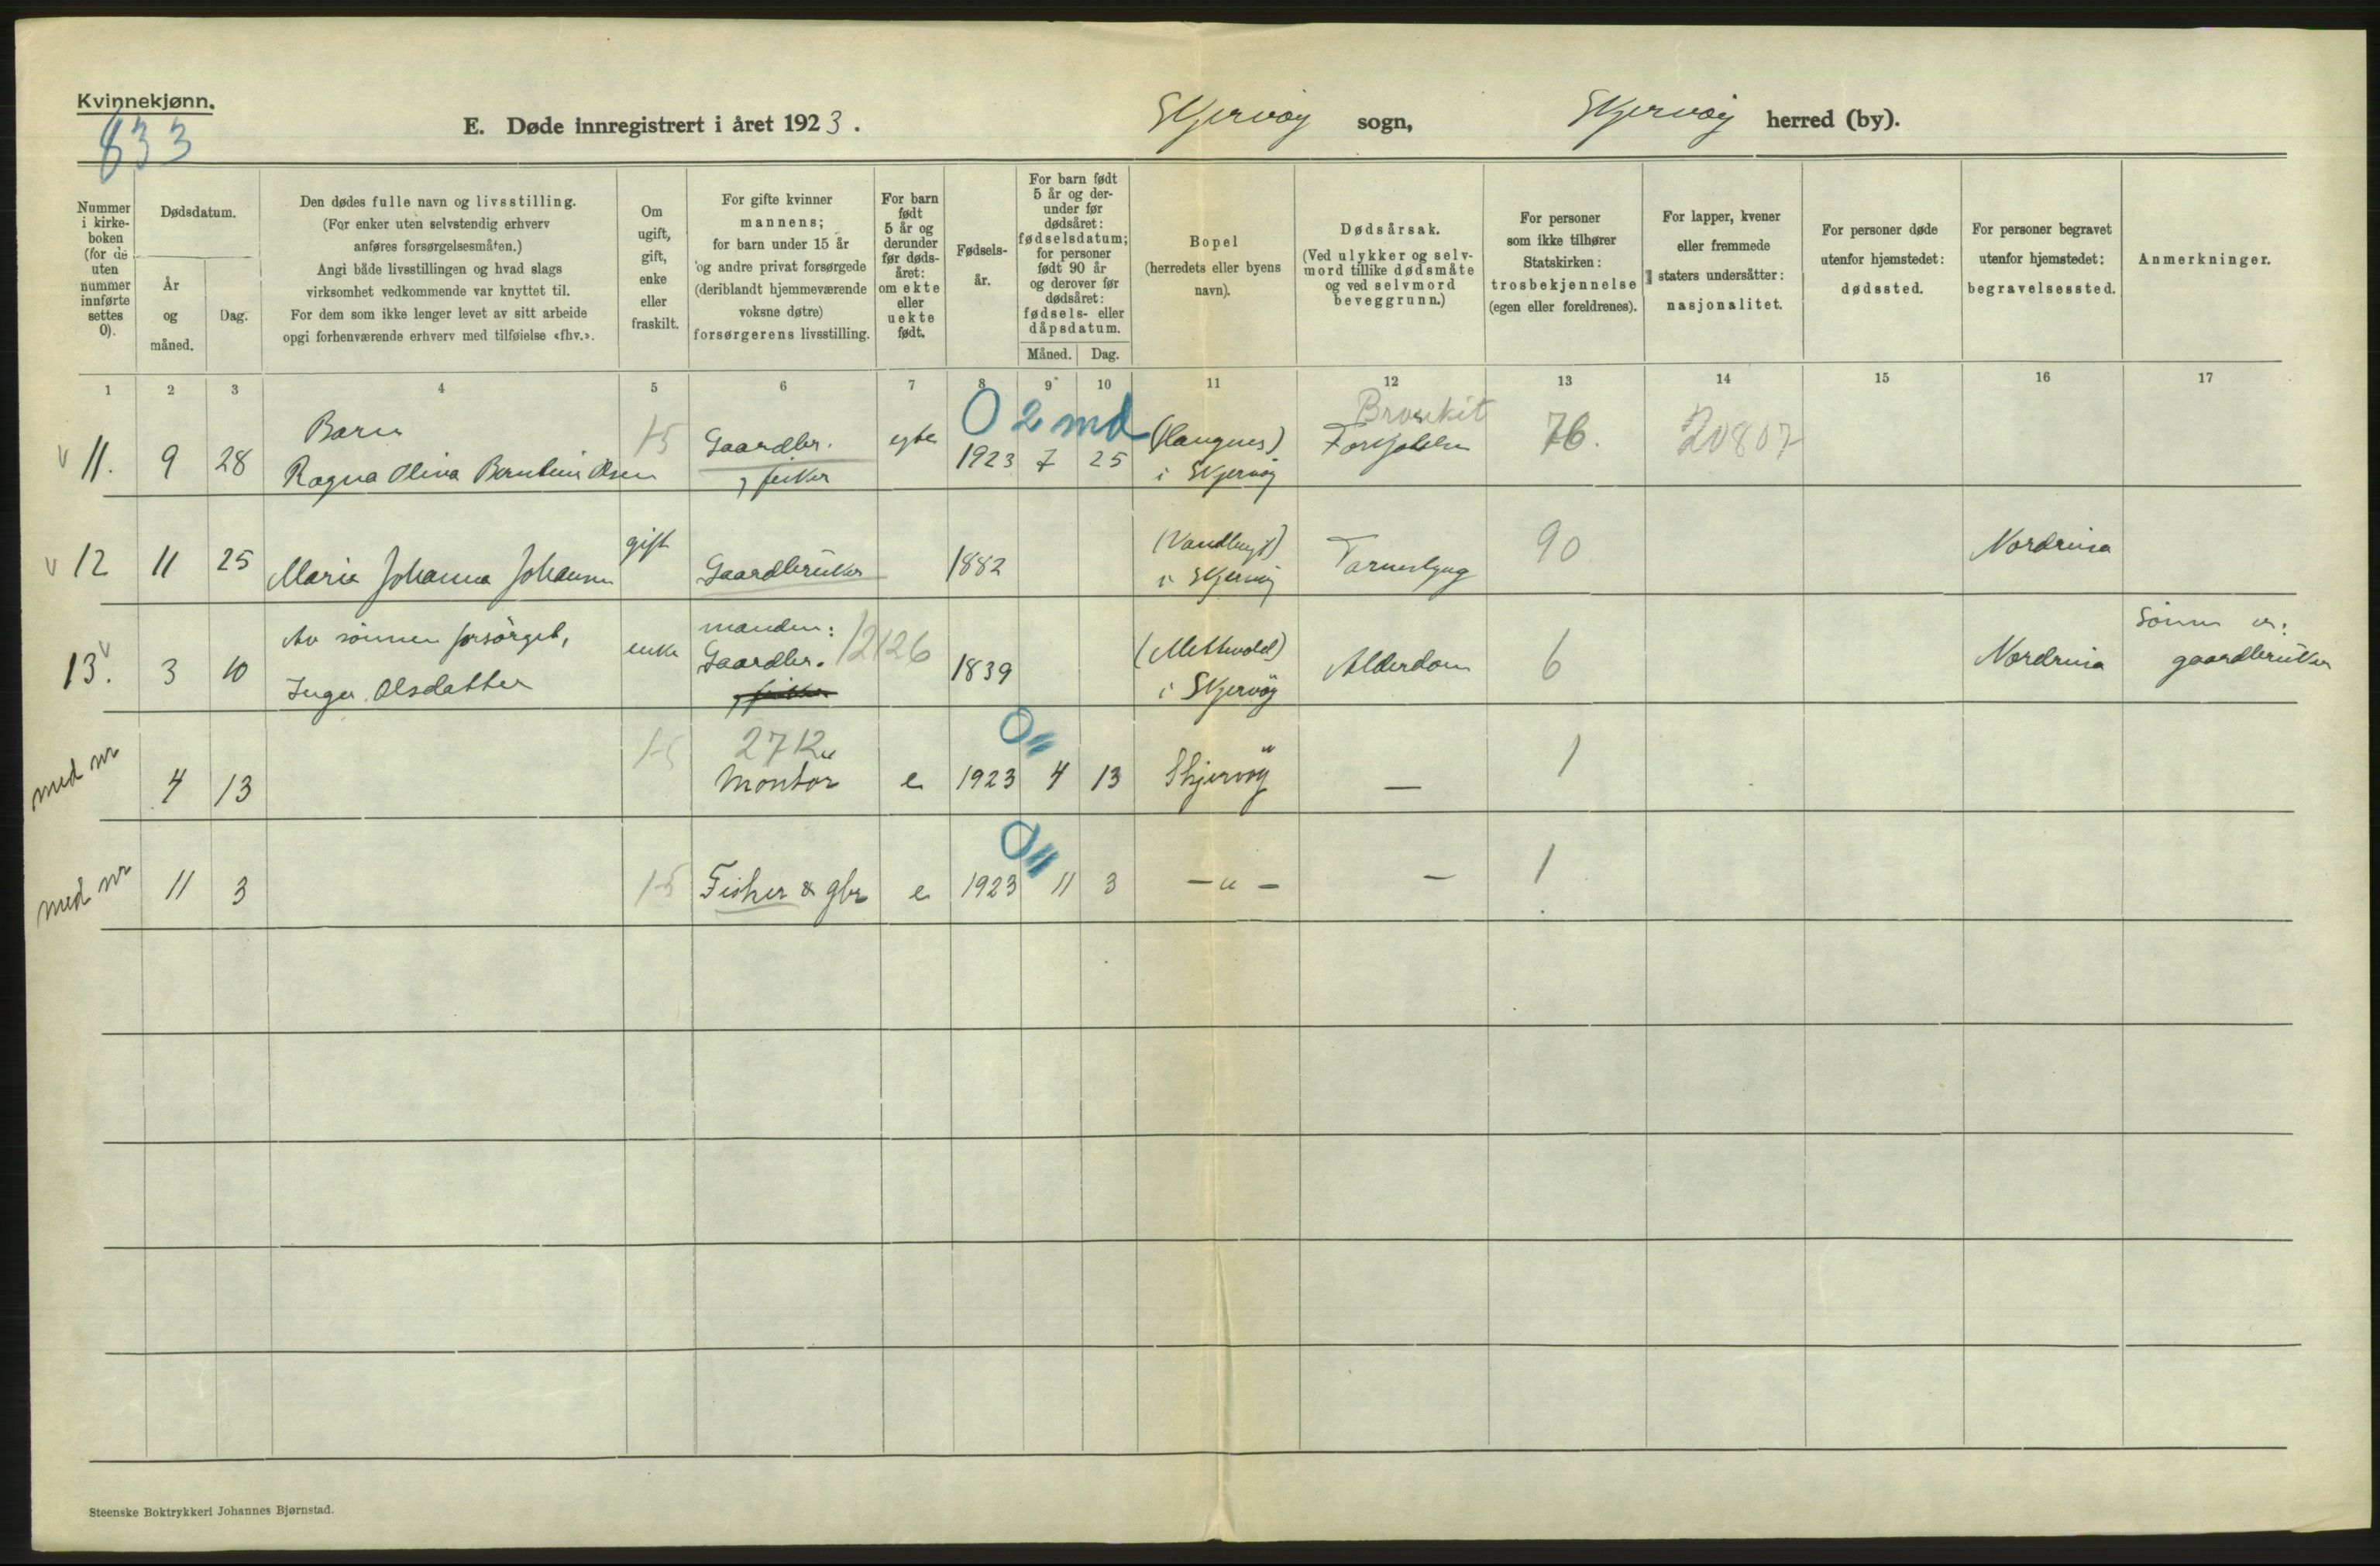 Kvinnekjønn.
833
E. Døde innregistrert i året 1923.
Skjervøy sogn,
Skjervøy herred (by).
Nummer
i kirke-
boken
(for de
uten
nummer
innførte
settes
0).
Dødsdatum.
År
og
måned.
Dag.
Den dødes fulle navn og livsstilling.
(For enker uten selvstendig erhverv
anføres forsørgelsesmåten.)
Angi både livsstillingen og hvad slags
virksomhet vedkommende var knyttet til.
For dem som ikke lenger levet av sitt arbeide
opgi forhenværende erhverv med tilføielse «fhv.».
Om
ugift,
gift,
enke
eller
fraskilt.
For gifte kvinner
mannens;
for barn under 15 år
og andre privat forsørgede
(deriblandt hjemmeværende
voksne døtre)
forsørgerens livsstilling.
For barn
født
5 år og
derunder
før døds-
året:
om ekte
eller
uekte
født.
Fødsels-
år.
For barn født
5 år og der-
under før
dødsåret:
fødselsdatum;
for personer
født 90 år
og derover før
dødsåret:
fødsels- eller
dåpsdatum.
Måned. Dag.
Bopel
(herredets eller byens
navn).
Dødsårsak.
(Ved ulykker og selv-
mord tillike dødsmåte
og ved selvmord
beveggrunn.)
For personer
som ikke tilhører
Statskirken:
trosbekjennelse
(egen eller foreldrenes).
For lapper, kvener
eller fremmede
staters undersåtter:
nasjonalitet.
For personer døde
utenfor hjemstedet:
dødssted.
For personer begravet
utenfor hjemstedet:
begravelsessted.
Anmerkninger.
1 2 3 4 5 6 7 8 9 10 11 12 13 14 15 16 17
0 2 md
Bronkit
Barn
15 Gaardbr. egte (Haugnes) 76. 20807
v 11. 9 28 Ragna Olina Olsen fisker 1923 7 25 i Skjervøy
gift (Vandbugt) 90 Nordreisa
v 12 11 25 Marie Johanna Johansen Gaardbruker 1882 i Skjervøy Tarmslyng
Av sönnen forsörget, enke manden: Sönnen er:
v 13. 3 10 Inger Olsdatter Gaardbr. 12126 1839 i Skjervöy Alderdom 6 Nordreisa gaardbruker
15 2712 0
med nr 4 13 Montør e 1923 4 13 Skjervöy — 1
0
med nr 11 3 15 Fisker & gbr e 1923 11 3 — " — — 1
Steenske Boktrykkeri Johannes Bjørnstad.